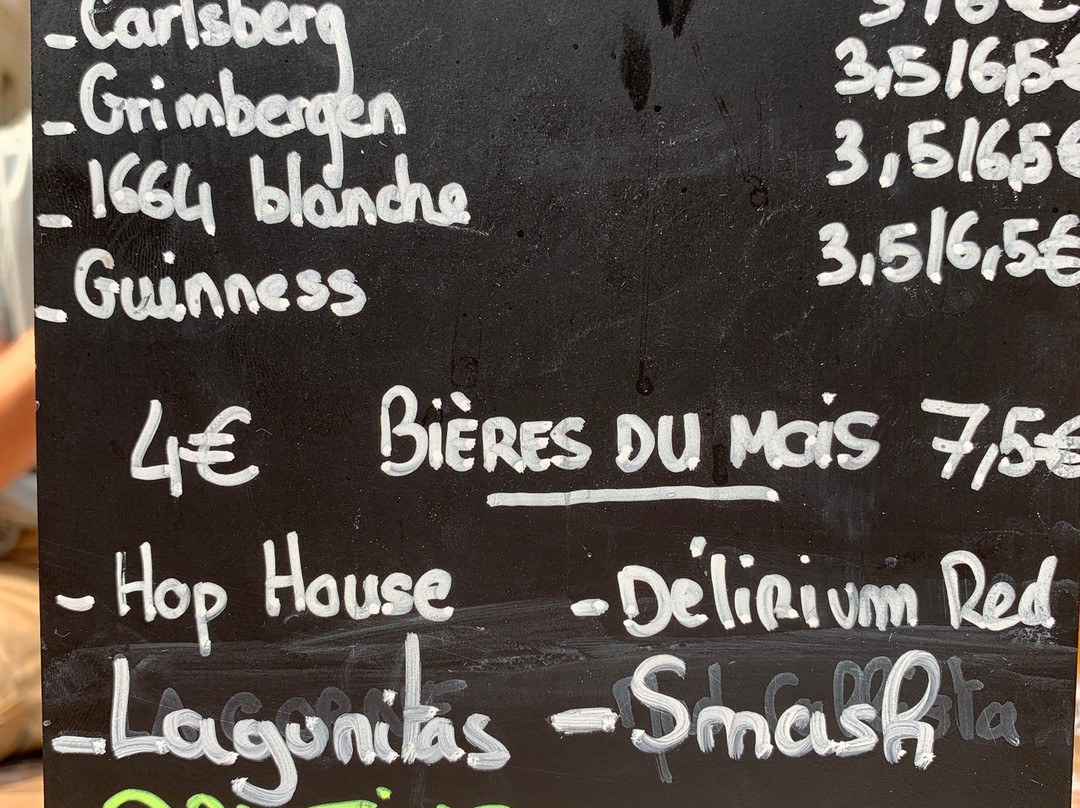 - Carlsberg 3/6€
- Grimbergen 3,5/6,5€
- 1664 blanche 3,5/6,5€
- Guinness 3,5/6,5€
4€ BIÈRES DU MOIS 7,5€
- Hop House - Délirium Red
- Lagonitas - Smash